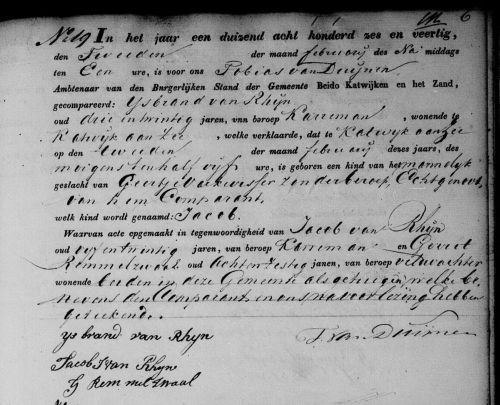 No 19 In het jaar een duizend acht honderd zes en veertig,
den Tweeden der maand februarij des Na middags
ten Een ure, is voor ons Tobias van Duijnen
Ambtenaar van den Burgerlijken Stand der Gemeente Beide Katwijken en het Zand,
gecompareerd: IJsbrand van Rhijn
oud drie en twintig jaren, van beroep Karreman, wonende te
Katwijk aan Zee, welke verklaarde, dat te Katwijk aan zee
op den tweeden der maand februarij dezes jaars, des
morgens ten half vijf ure, is geboren een kind van het mannelyk
geslacht van Geertje Varkevisser zonder beroep, Echtgenoot
van hem Comparant.
welk kind wordt genaamd: Jacob.
Waarvan acte opgemaakt in tegenwoordigheid van Jacob van Rhijn
oud twintig jaren, van beroep Karreman en Gerrit
Remmelzwaal oud Achtenzestig jaren, van beroep veldwachter
wonende beiden in deze Gemeente als getuigen welke be
nevens den Comparant en ons na voorlezing hebben
geteekend.
ysbrand van Rhyn T. van Duijnen
Jacob J van Rhyn
G Remmelzwaal